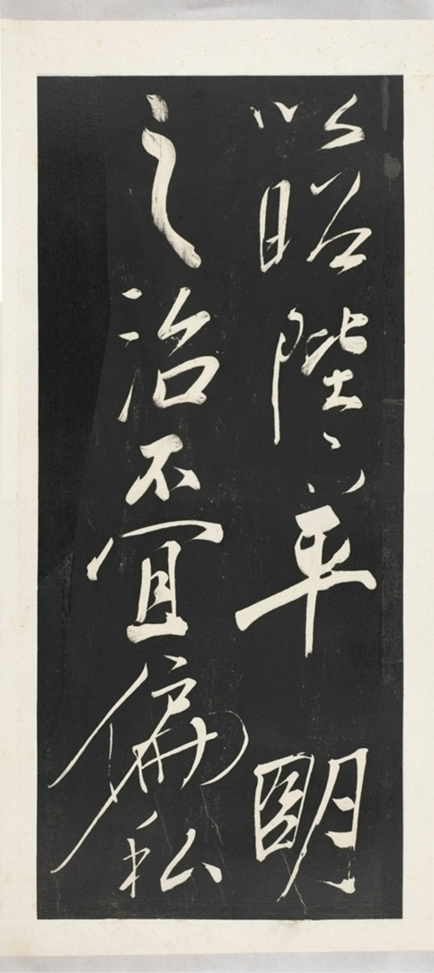 以昭陛下平明
之治不宜偏私